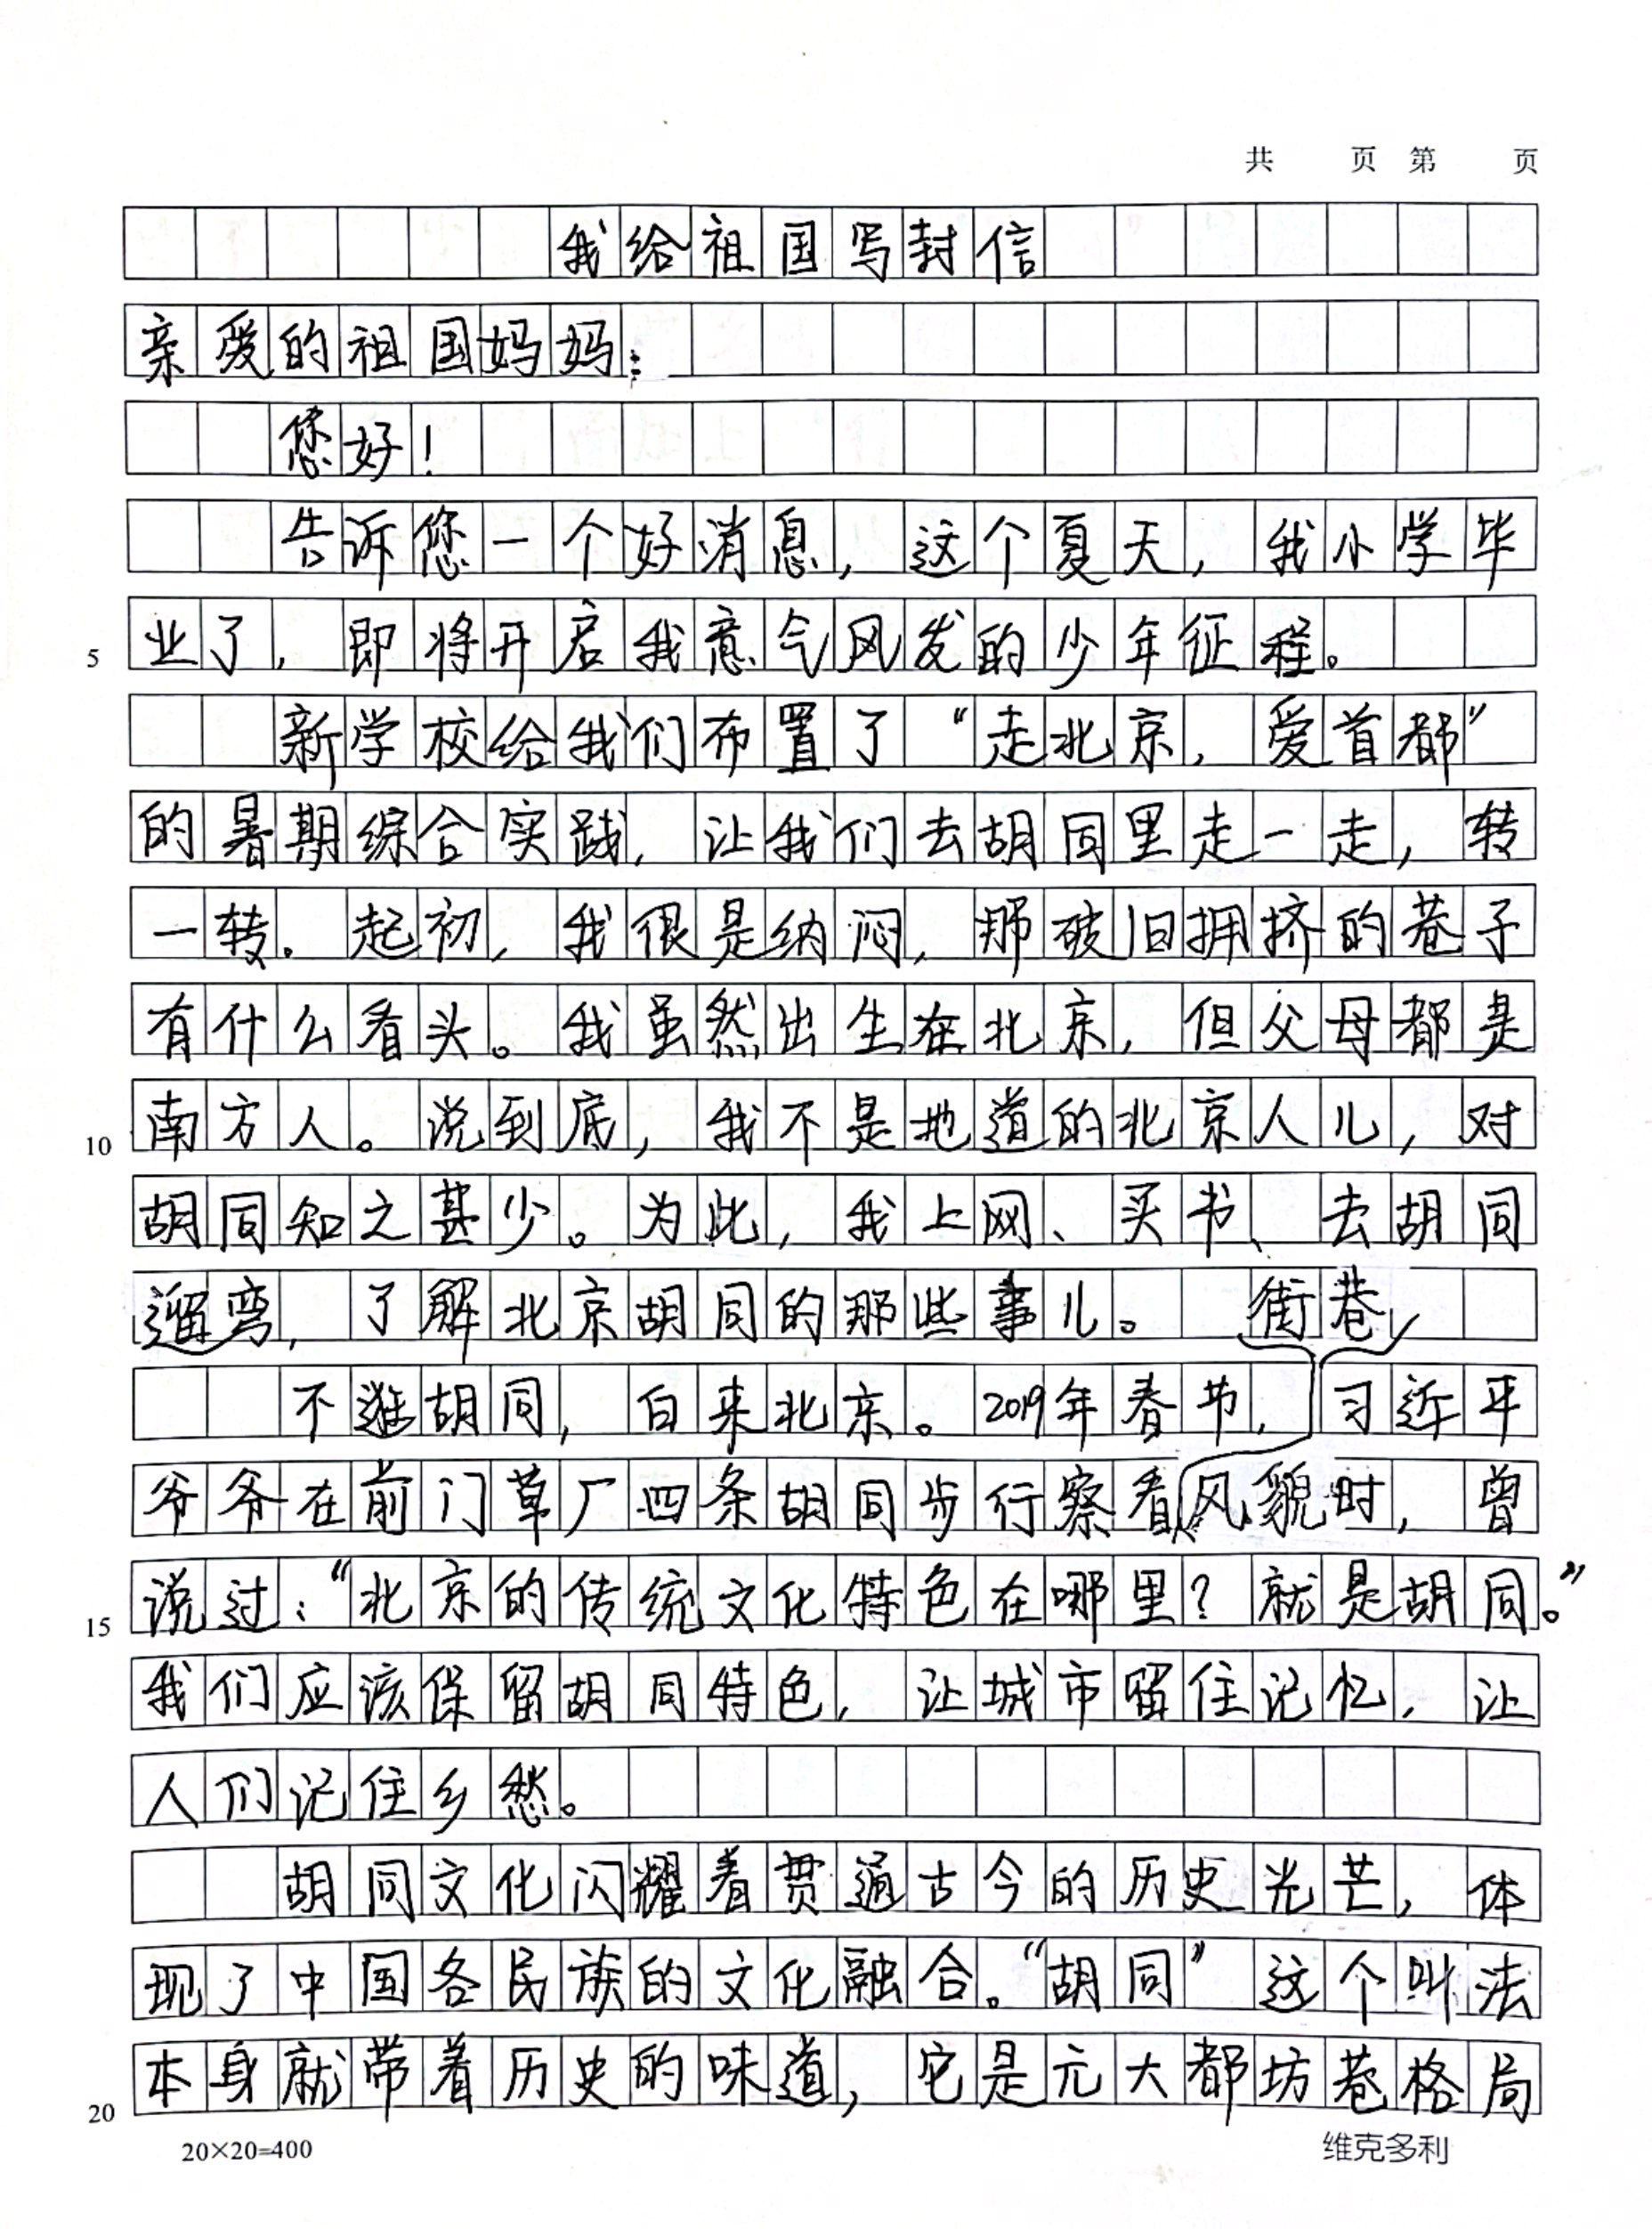 共 页 第 页
我给祖国写封信
亲爱的祖国妈妈:
您好!
告诉您一个好消息,这个夏天,我小学毕
5 业了,即将开启我意气风发的少年征程。
新学校给我们布置了“走北京,爱首都”
的暑期综合实践,让我们去胡同里走一走,转
一转。起初,我很是纳闷,那破旧拥挤的巷子
有什么看头。我虽然出生在北京,但父母都是
10 南方人。说到底,我不是地道的北京人儿,对
胡同知之甚少。为此,我上网、买书、去胡同
遛弯,了解北京胡同的那些事儿。 街巷
不逛胡同,白来北京。2019年春节,习近平
爷爷在前门草厂四条胡同步行察看风貌时,曾
15 说过:“北京的传统文化特色在哪里?就是胡同。”
我们应该保留胡同特色,让城市留住记忆,让
人们记住乡愁。
胡同文化闪耀着贯通古今的历史光芒,体
现了中国各民族的文化融合。“胡同”这个叫法
20 本身就带着历史的味道,它是元大都坊巷格局
20×20=400 维克多利